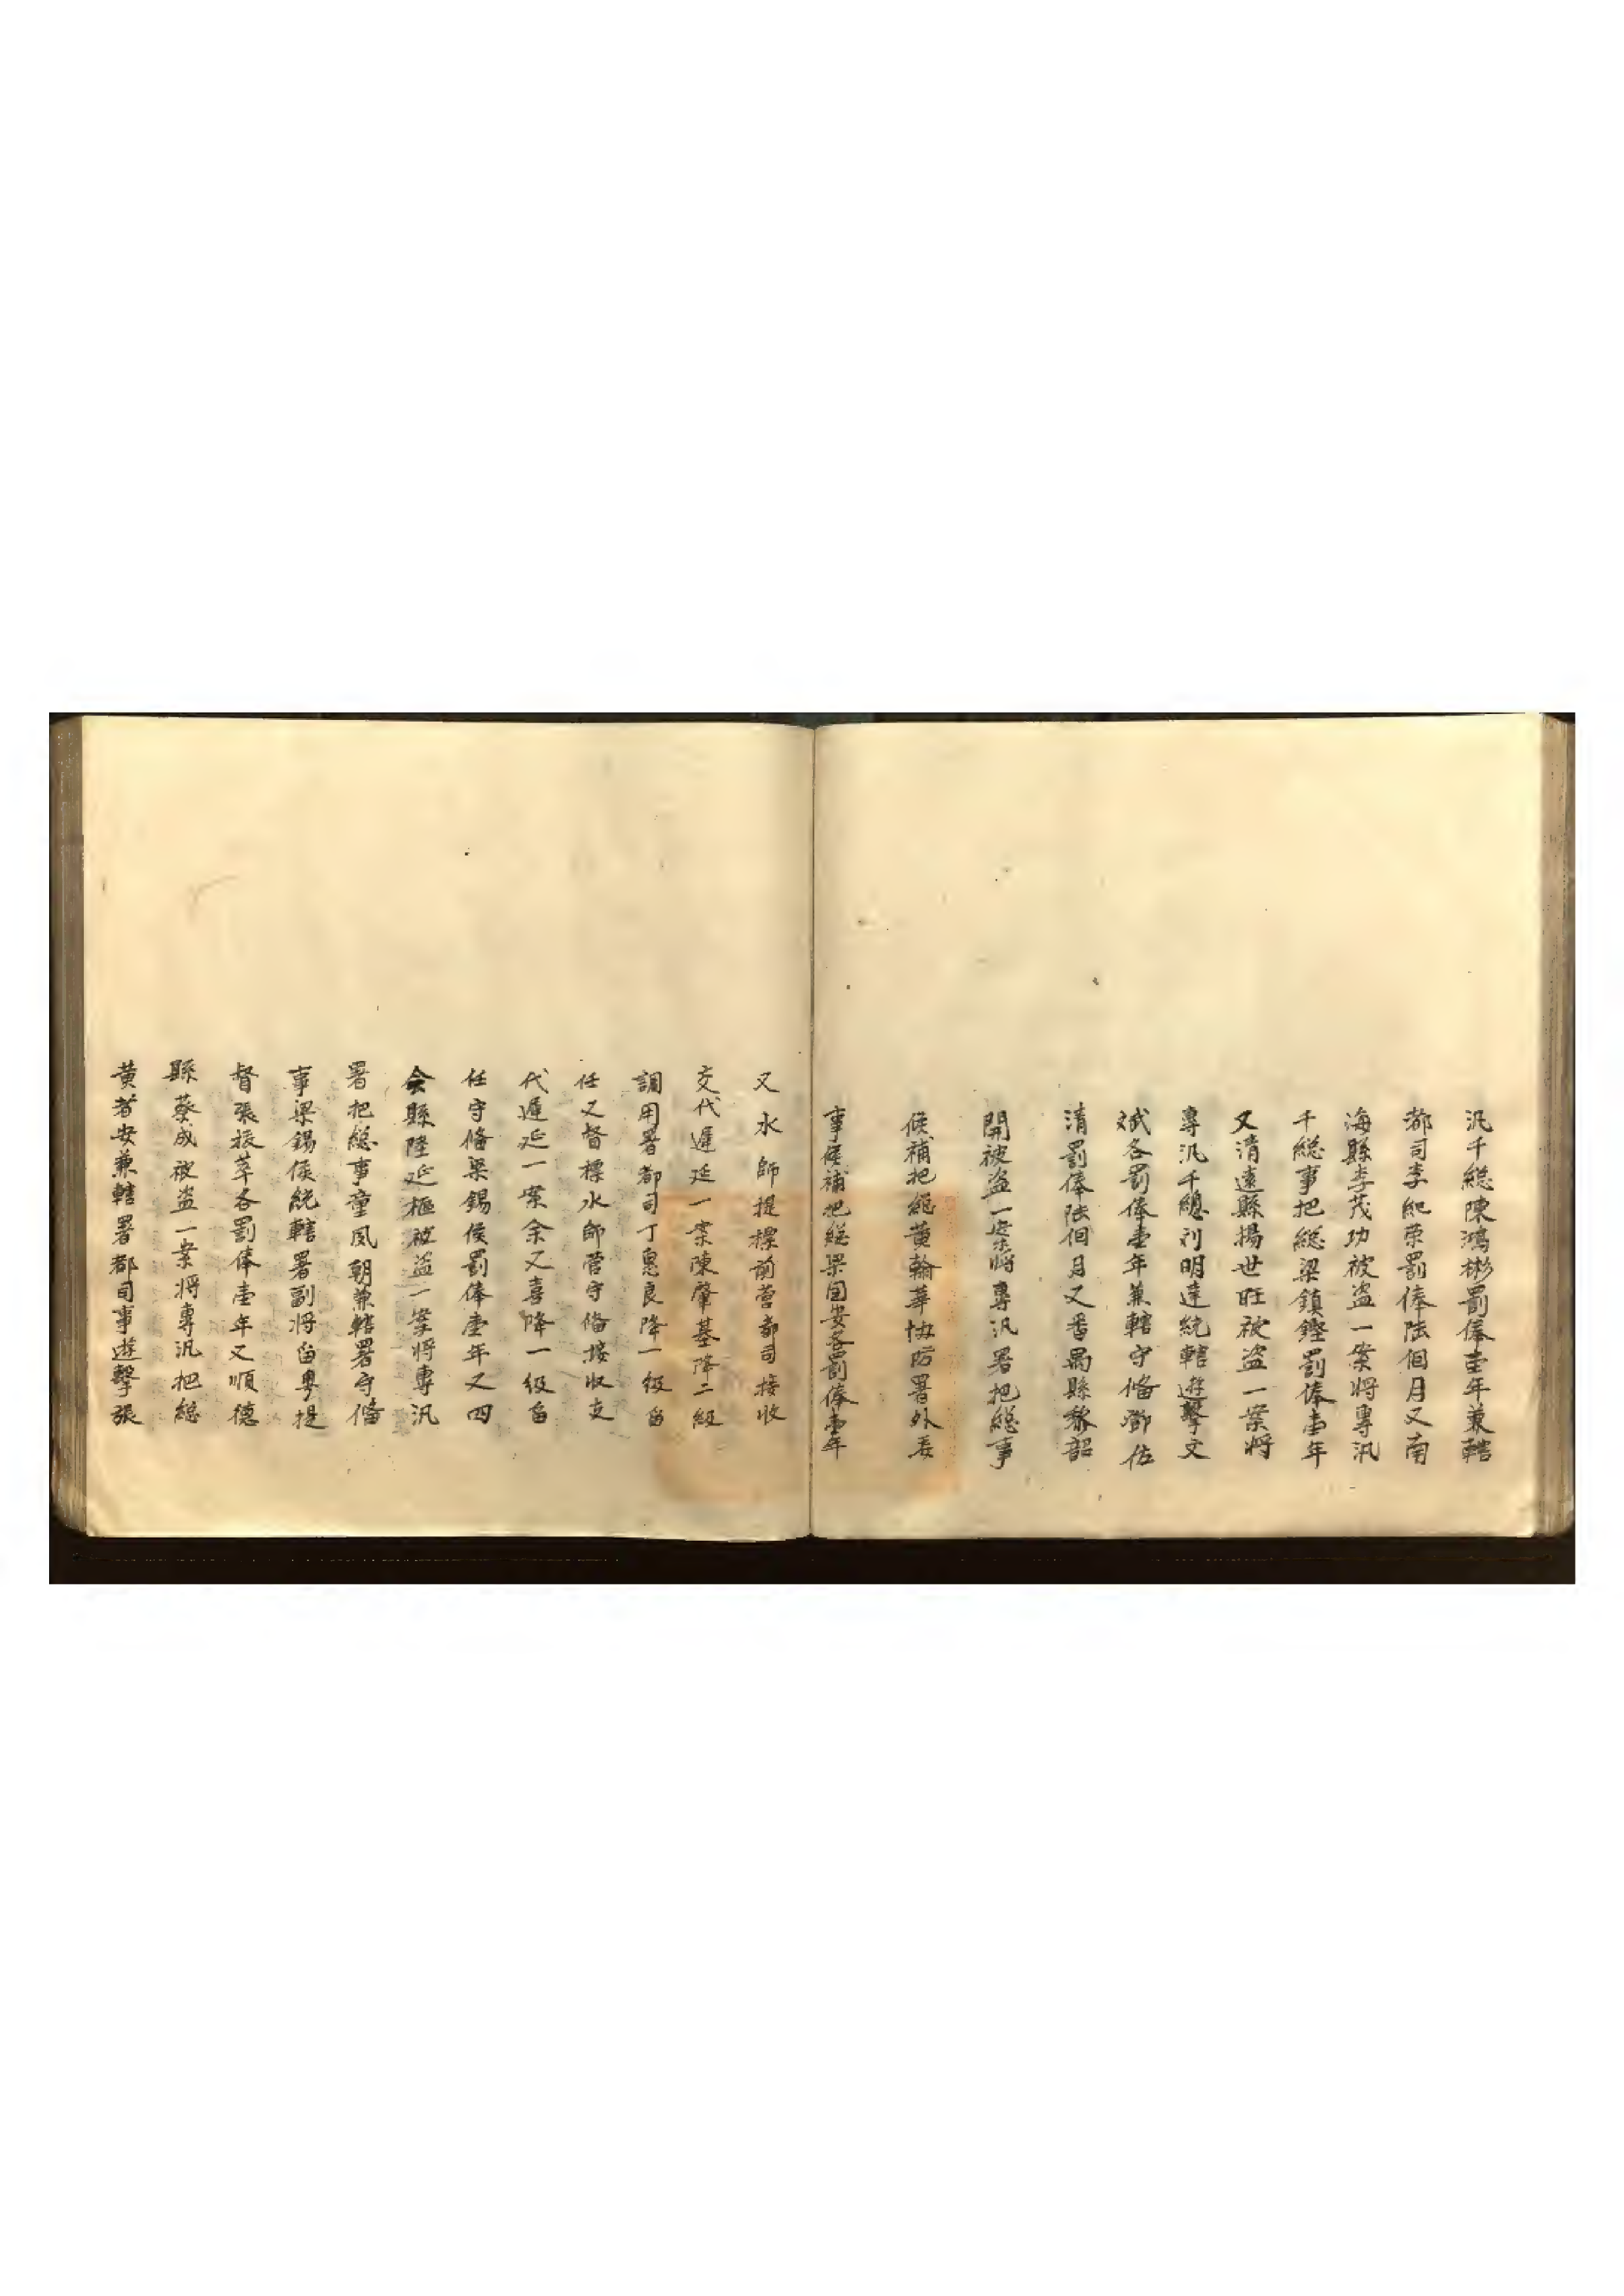 汛千総陳鴻彬罰俸壹年兼轄
都司李紀荣罰俸陆個月又南
海縣李茂功被盗一案将專汛
千総事把総梁鎮鏗罰俸壹年
又清遠縣揚世旺被盗一案将
專汛千總刘明達統轄遊擊文
斌各罰俸壹年兼轄守備鄧佐
清罰俸陆個月又番禺縣黎韶
開被盗一案將專汛署把総事
候補把總黄翰華協防署外委
事候補把総梁国安各罰俸壹年
又水師提標前营都司接收
交代遲延一案陳肇基降二級
調用署都司丁惠良降一級畄
任又督標水師营守俻接收交
代遲延一案余又喜降一级畄
任守俻梁錫侯罰俸壹年又四
会縣陸延樞被盗一案将專汛
署把総事童凤朝兼轄署守俻
事梁錫侯統轄署副将畄粤提
督張振萃各罰俸壹年又順德
縣蔡成被盗一案将專汛把総
黄者安兼轄署都司事遊擊張